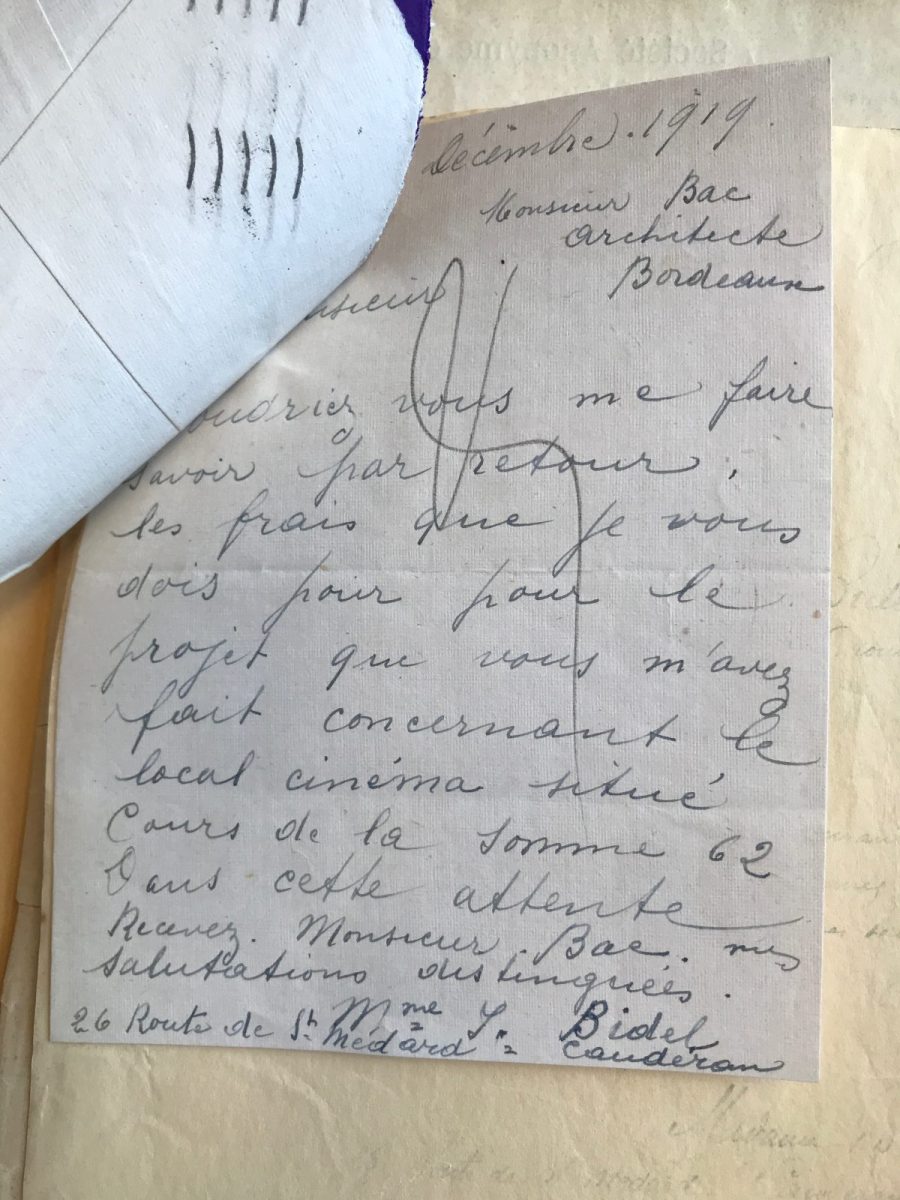 Société Anonyme
Décembre. 1919
Monsieur Bac
architecte
Bordeaux
voudriez vous me faire
savoir par retour,
les frais que je vous
dois pour pour le
projet que vous m'avez
fait concernant le
local cinéma situé
Cours de la Somme 62
Dans cette attente
Recevez. Monsieur. Bac. mes
salutations distinguées.
Mme Y. Bidel
26 Route de St Médard = Caudéran